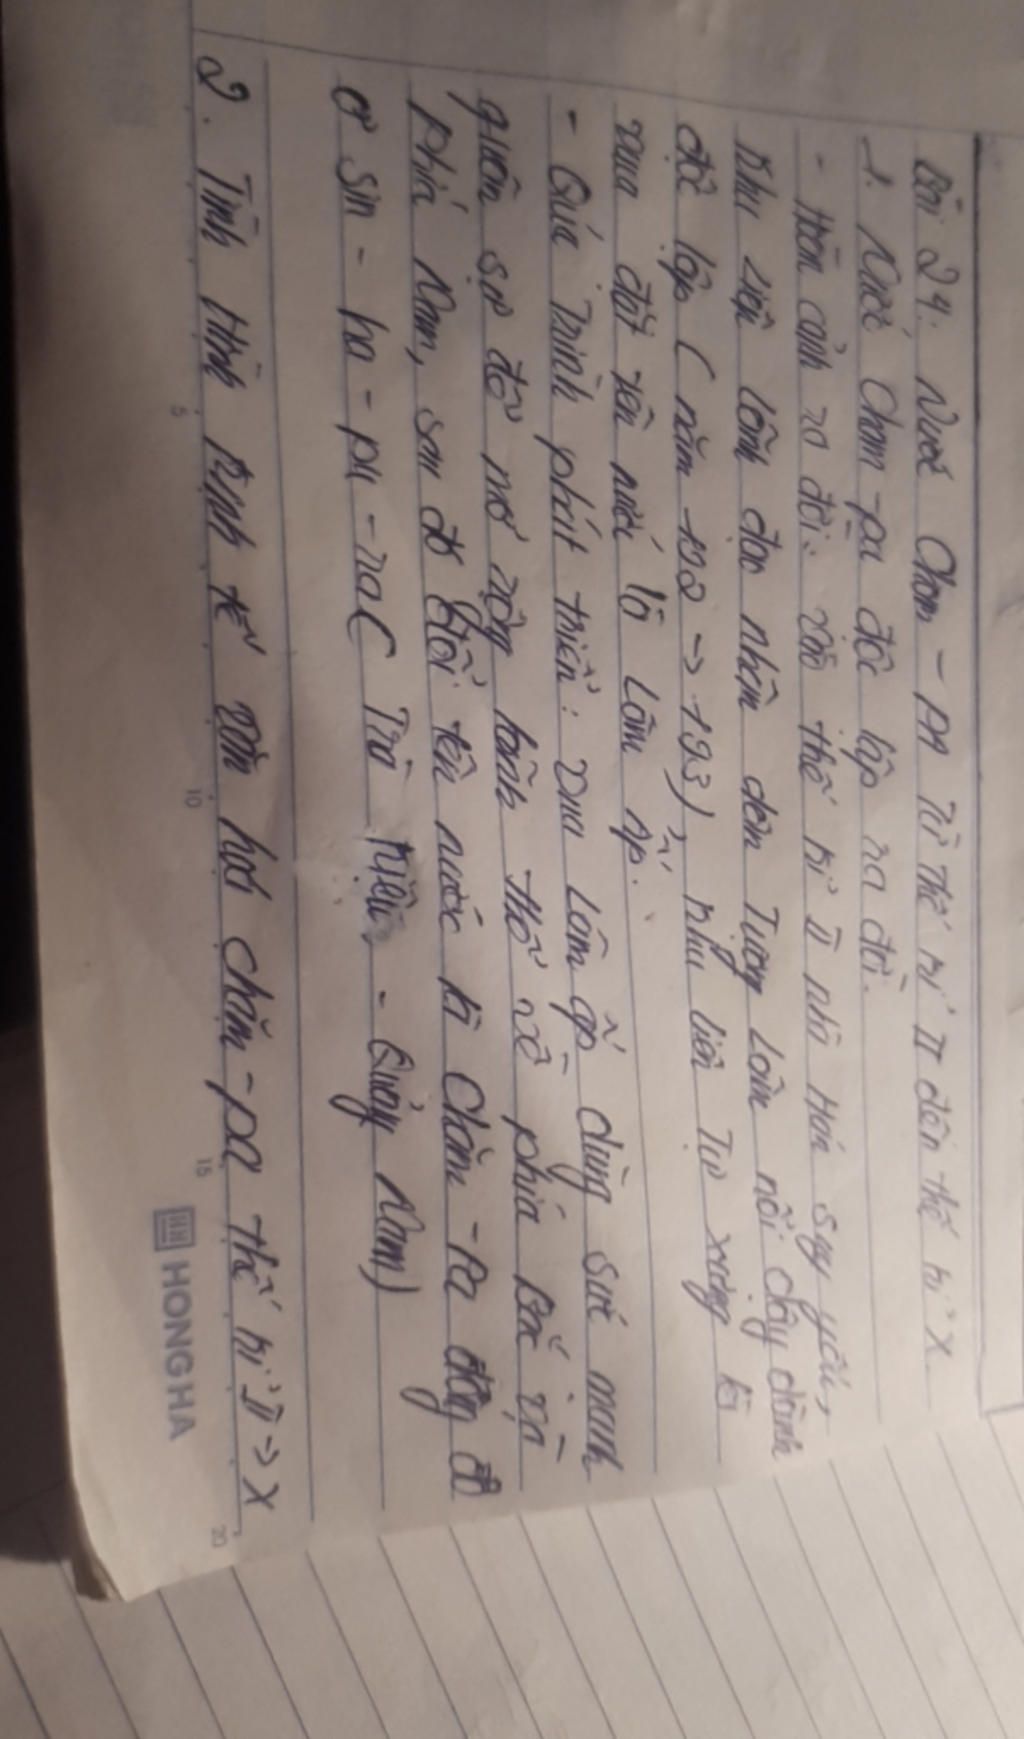 Bài 24. Nước Cham-PA Từ thế kỉ II đến thế kỉ X
1. Nước Cham-pa độc lập ra đời.
- Hoàn cảnh ra đời: vào thế kỉ II nhà Hán suy yếu,
Khu Liên lãnh đạo nhân dân Tượng Lâm nổi dậy dành
độc lập (năm 192 -> 193), Khu Liên Tự xưng là
vua đặt tên nước là Lâm ấp.
- Quá Trình phát triển: vua Lâm ấp dùng sức mạnh
quân sự để mở rộng lãnh thổ về phía Bắc và
phía Nam, sau đó đổi tên nước là Chăm-Pa đóng đô
ở Sin-ha-pu-ra (Trà Kiệu - Quảng Nam)
2. Tình Hình Kinh tế văn hoá chăm-pa thế kỉ II -> X
5
10
15
20
HH HONGHA